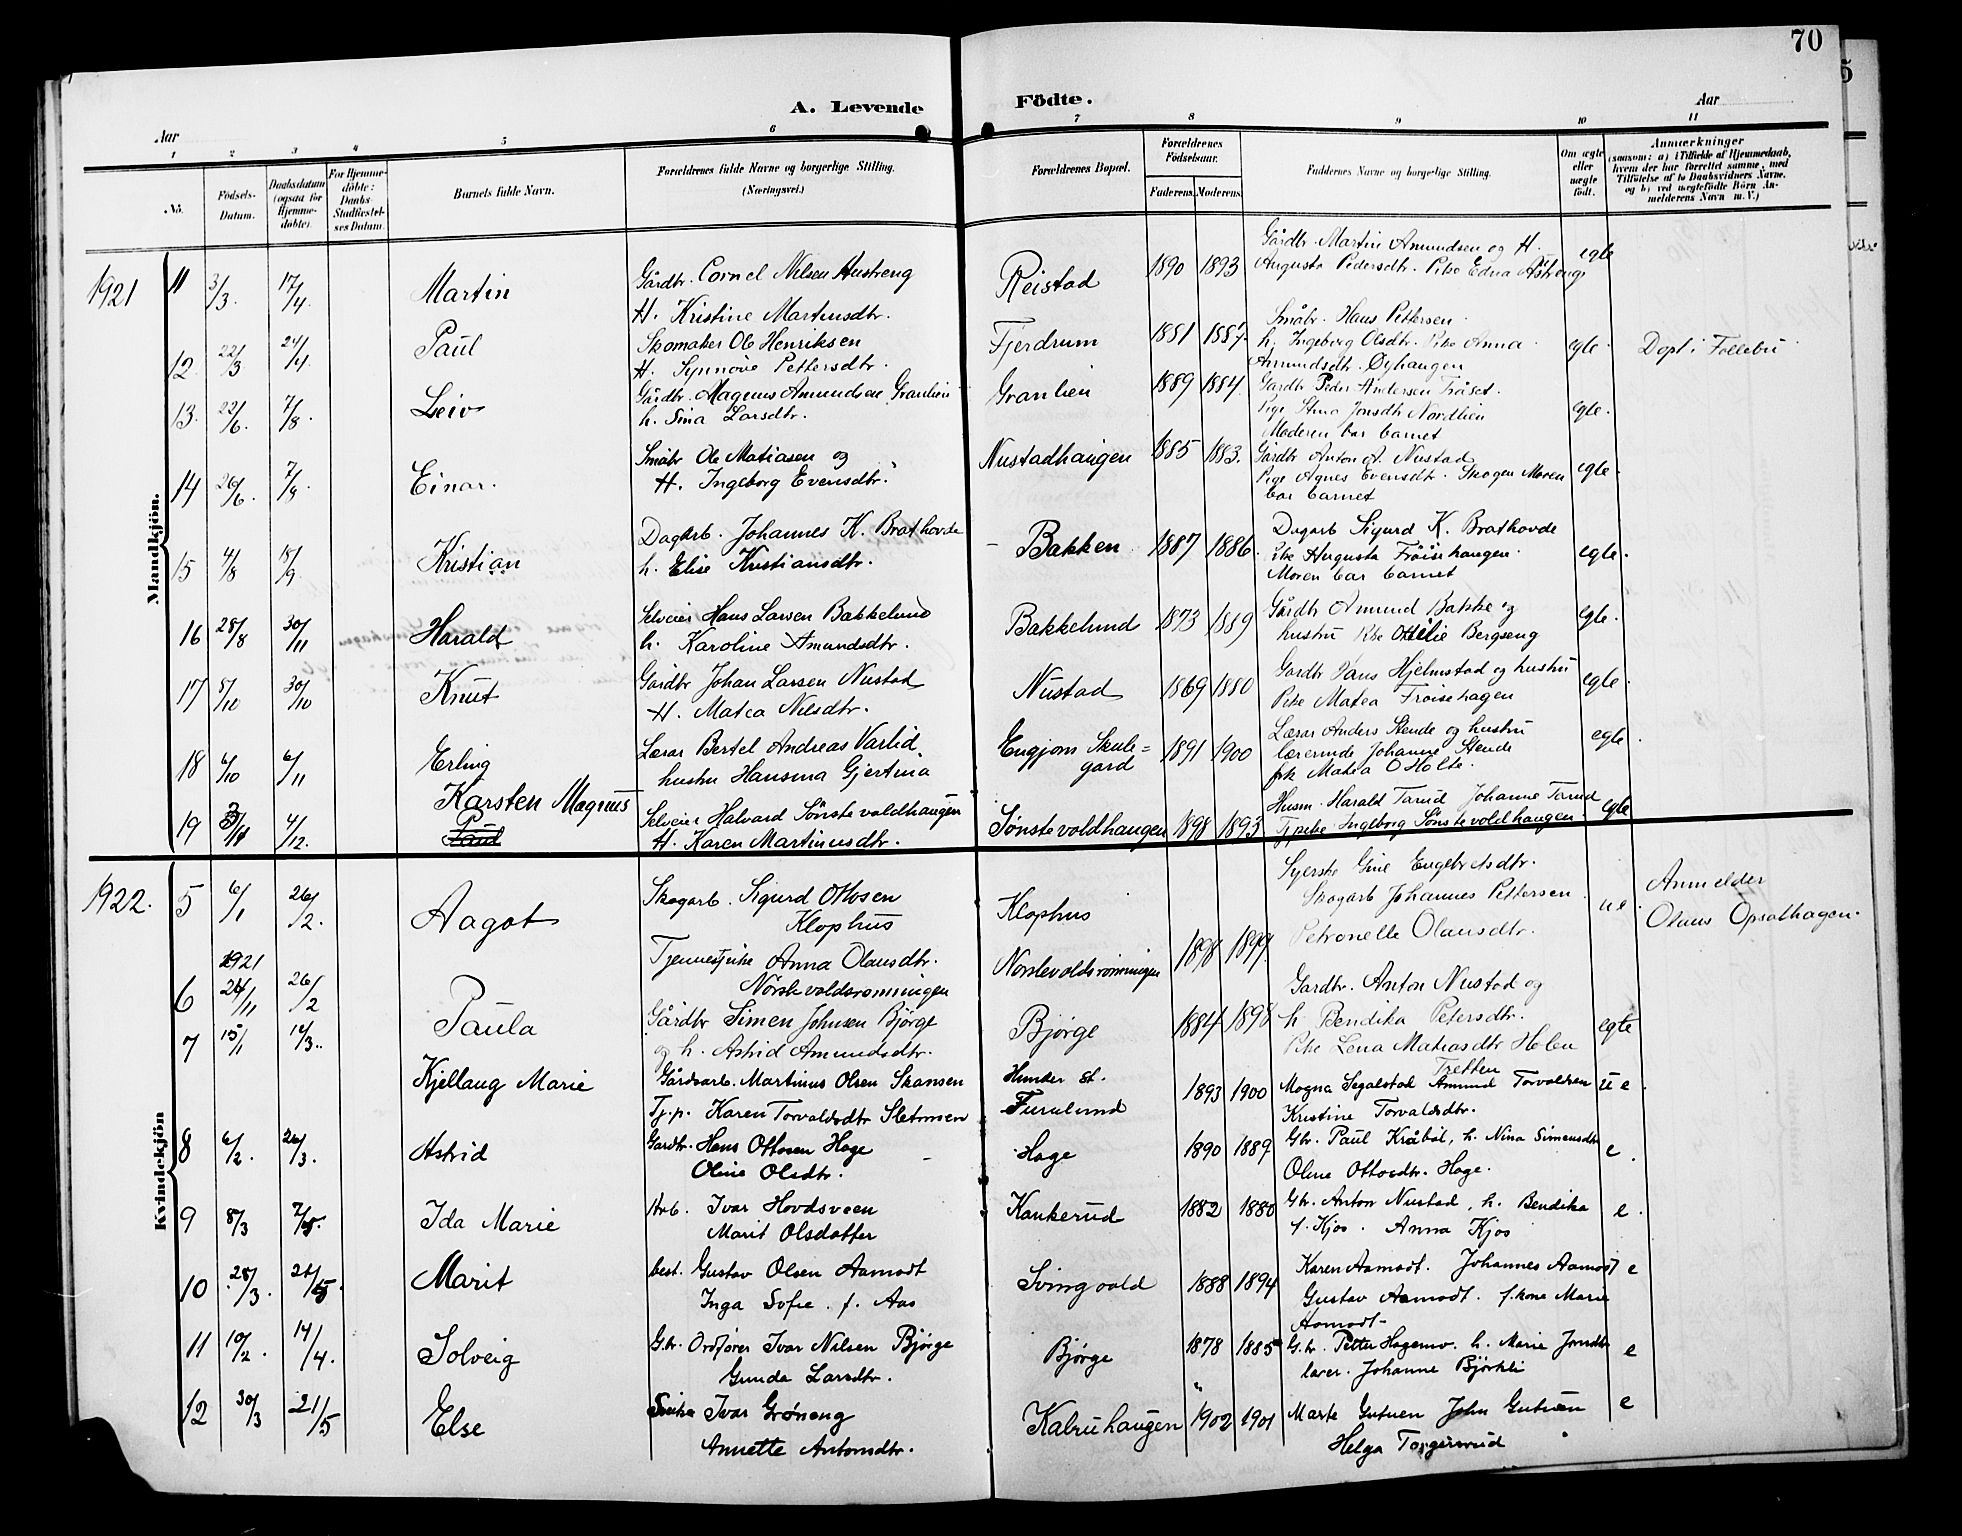 70
A. Levende Födte.
Aar
Aar
1 2 3 4 5 6 7 8 9 10 11
No.
Fødsels-Datum.
Daabsdatum (ogsaa for Hjemmedøbte).
For Hjemmedøbte: Daabs Stadfæstelses Datum.
Barnets fulde Navn.
Forældrenes fulde Navne og borgerlige Stilling. (Næringsvei.)
Forældrenes Bopæl.
Forældrenes Fødselsaar.
Faderens. Moderens.
Faddernes Navne og borgerlige Stilling.
Om ægte eller uægte født.
Anmærkninger
(saasom: a) i Tilfælde af Hjemmedaab, hvem der har forrettet samme, med Tilføielse af to Daabsvidners Navne, og b) ved uægtefødte Børn Anmelderens Navn m. V.)
Mandkjön.
1921 11 3/3. 17/4. Martin
Gårdbr. Cornel Nilsen Austreng
H. Kristine Martinsdtr.
Reistad 1890 1893
Gårdbr. Martin Amundsen og H.
Augusta Pedersdtr. Pike Edna Austreng
egte
12. 22/3 24/4 Paul
Skomaker Ole Henriksen
H. Synnøve Pettersdtr.
Fjerdrum 1881 1887.
Småbr. Hans Pettersen.
h. Ingeborg Olsdtr. Pike Anna
Amundsdtr. Øyhaugen
egte. Døpt i Follebu
13. 22/6. 7/8. Leiv
Gårdbr. Magnus Amundsen Granlien
h. Sina Larsdtr.
Granlien 1889 1884.
Gardbr Peder Andersen Tråset.
Pige Stina Jonsdtr Nordlien
Moderen bar barnet
egte.
14 26/6. 7/8. Einar.
Småbr Ole Matiasen og
H. Ingeborg Evensdtr.
Nustadhaugen 1885 1883.
Gårdbr Anton A. Nustad
Pige Agnes Evensdtr. Skogen Moren
bar barnet
egte.
15 4/8 18/9. Kristian
Dagarb. Johannes K. Brathovde
h. Elise Kristiansdtr.
Bakken 1887 1886.
Dagarb Sigurd K. Brathovde
Pike Augusta Frøisehaugen.
Moren bar barnet
egte.
16 28/8 30/11 Harald
Selveier Hans Larsen Bakkelund
h. Karoline Amundsdtr.
Bakkelund 1873 1889
Gårdbr Amund Bakke og
hustru Pike Ottilie Bergseng
egte.
17 8/10 30/10 Knut
Gårdbr Johan Larsen Nustad
H. Matea Nilsdtr.
Nustad 1869 1880
Gardbr Hans Hjelmstad og hustru
Pike Matea Frøisehagen
egte.
18 6/10 6/11 Erling
Lærer Bertel Andreas Varlid
hustru Hansina Gjertina
Engjom Skule=
gard 1891 1900
Lærar Anders Stende og hustru
lærerinde Johanne Stende
frk Matea O Holte.
egte.
19 4/12. Karsten Magnus
Paul
Selveier Halvard Sønstevoldhaugen
H. Karen Martinusdtr.
Sønstevoldhaugen 1898 1893
Husm. Harald Tarud Johanne Tarud
Tj.pike Ingeborg Sønstevoldhaugen.
egte
Kvindekjön
1922. 5 6/1 26/2. Aagot
Skogarb. Sigurd Ottosen
Klophus
Tjenestpike Anna Olausdtr.
Klophus
1898 1899.
Syerske Gine Engebretsdtr.
Skogarb Johannes Pettersen
Petronelle Olausdtr.
u e. Anmelder
Olaus Opsalhagen.
1921
6 24/11 26/2 Paula
Gårdbr Simen Johnsen Bjørge
og h. Astrid Amundsdtr.
Bjørge 1884 1898
Gardbr. Anton Nustad og
h. Bendika Petersdtr.
Pike Lena Matiasdtr Holen
Tretten
egte
7 15/1 14/3. Kjellaug Marie
Gårdsarb. Martinus Olsen Skansen
Tj.p. Karen Torvaldsdtr Sletmoen
Hunder st.
Furulund 1893 1900
Magna Segalstad Amund Torvaldsen
Kristine Torvaldsdtr.
u e.
8 6/2. 26/3. Astrid
Gardbr. Hans Ottosen Hage
Oline Olsdtr.
Hage 1890 1887
Gbr. Paul Kråbøl, h. Nina Simensdtr
Oline Ottosdtr. Hage.
e.
9 8/3 Ida Marie
Arb. Ivar Hovdsveen
Marit Olsdatter
Kankerud 1882 1880
Gbr. Anton Nustad, h. Bendika
f. Kjos. Anna Kjos
e.
10 28/3. Marit
best. Gustav Olsen Aamodt
Inga Sofie f. Aas
Svingvold 1888 1894
Karen Aamodt. Johannes Aamodt
Gustav Aamodt. f. kone Marie
Aamodt-
e
11 10/2 14/4. Solveig
Gbr. Ordfører Ivar Nilsen Bjørge
Gunda Larsdtr.
Bjørge 1878 1885
Gbr. Petter Hagemo. h. Marie Jonsdtr
lærer. Johanne Bjørkli
e
12 30/3 21/5 Else
Ivar Grøneng
Annette Antonsdtr.
Kalruhaugen 1902 1901
Marte Gutuen John Gutuen
Helga Torgersrud
e